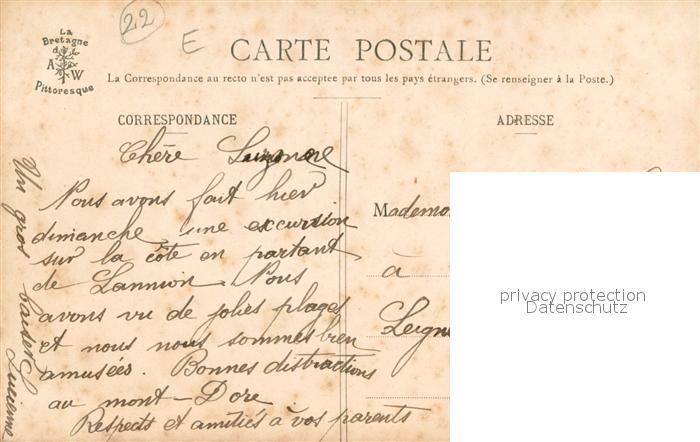 La
Bretagne
A W
Pittoresque
22
E
CARTE POSTALE
La Correspondance au recto n'est pas acceptee par tous les pays étrangers. (Se renseigner à la Poste.)
CORRESPONDANCE
ADRESSE
Chère Suzanne
Nous avons fait hier
dimanche, une excursion
sur la côte en partant
de Lannion. Nous
avons vu de jolies plages
et nous nous sommes bien
amusées. Bonnes distractions
au mont-Dore
Respects et amitiés à vos parents
Un gros baiser Lucienne
Mademo
à
Leign
privacy protection
Datenschutz